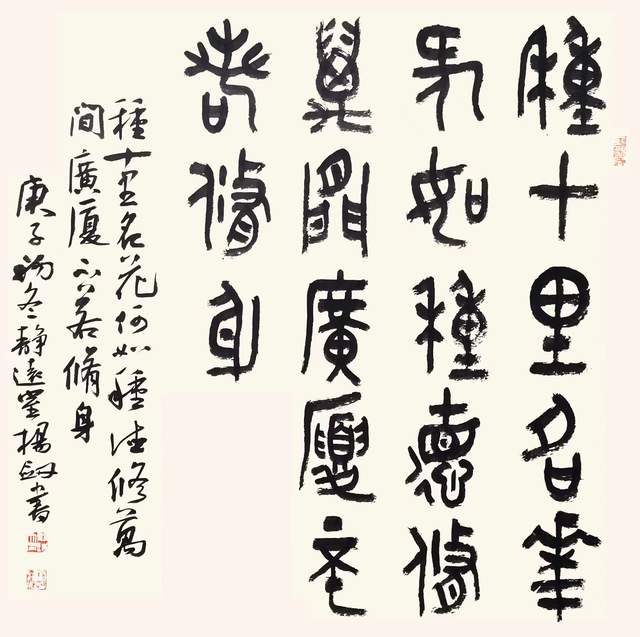 種十里名華
何如種德修
萬間廣廈不
若修身
種十里名花何如種德修萬
間廣廈不若脩身
庚子初冬靜遠堂楊劍書